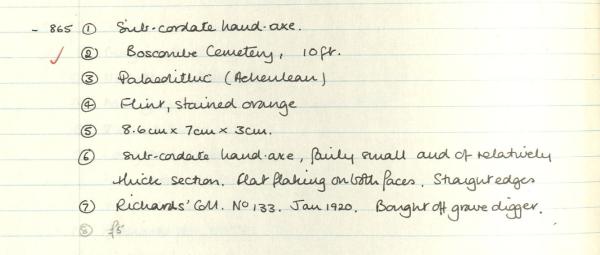 - 865 ① Sub-cordate hand-axe.
② Boscombe Cemetery, 10ft.
③ Palaeolithic (Acheulean)
④ Flint, stained orange
⑤ 8.6cm x 7cm x 3cm.
⑥ Sub-cordate hand-axe, fairly small and of relatively
thick section. Flat flaking on both faces. Straight edges
⑦ Richards' Coll. No 133. Jan 1920. Bought off grave digger.
⑧ £5